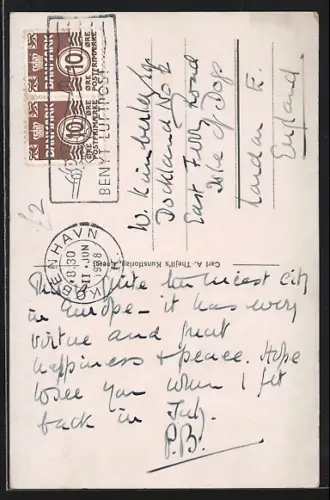 DANMARK 10 ØRE ØRE POSTFRIMÆRKE
DANMARK 10 ØRE ØRE POSTFRIMÆRKE
BENYT LUFTPOST
KØBENHAVN
18.30
11. JUN
1938
£2
W. Kimberley Esq
Dockland No 2
East Ferry Road
Isle of Dogs
London E.
England.
Carl A. Thejll's Kunstforlag,
This quite the nicest city
in Europe – it has every
virtue and great
happiness & peace. Hope
to see you when I get
back in July.
P.B.